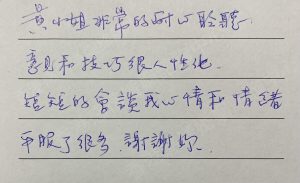 黃小姐非常的耐心聆聽.
意見和技巧很人性化.
短短的會談我心情和情緒
平服了很多 謝謝妳.